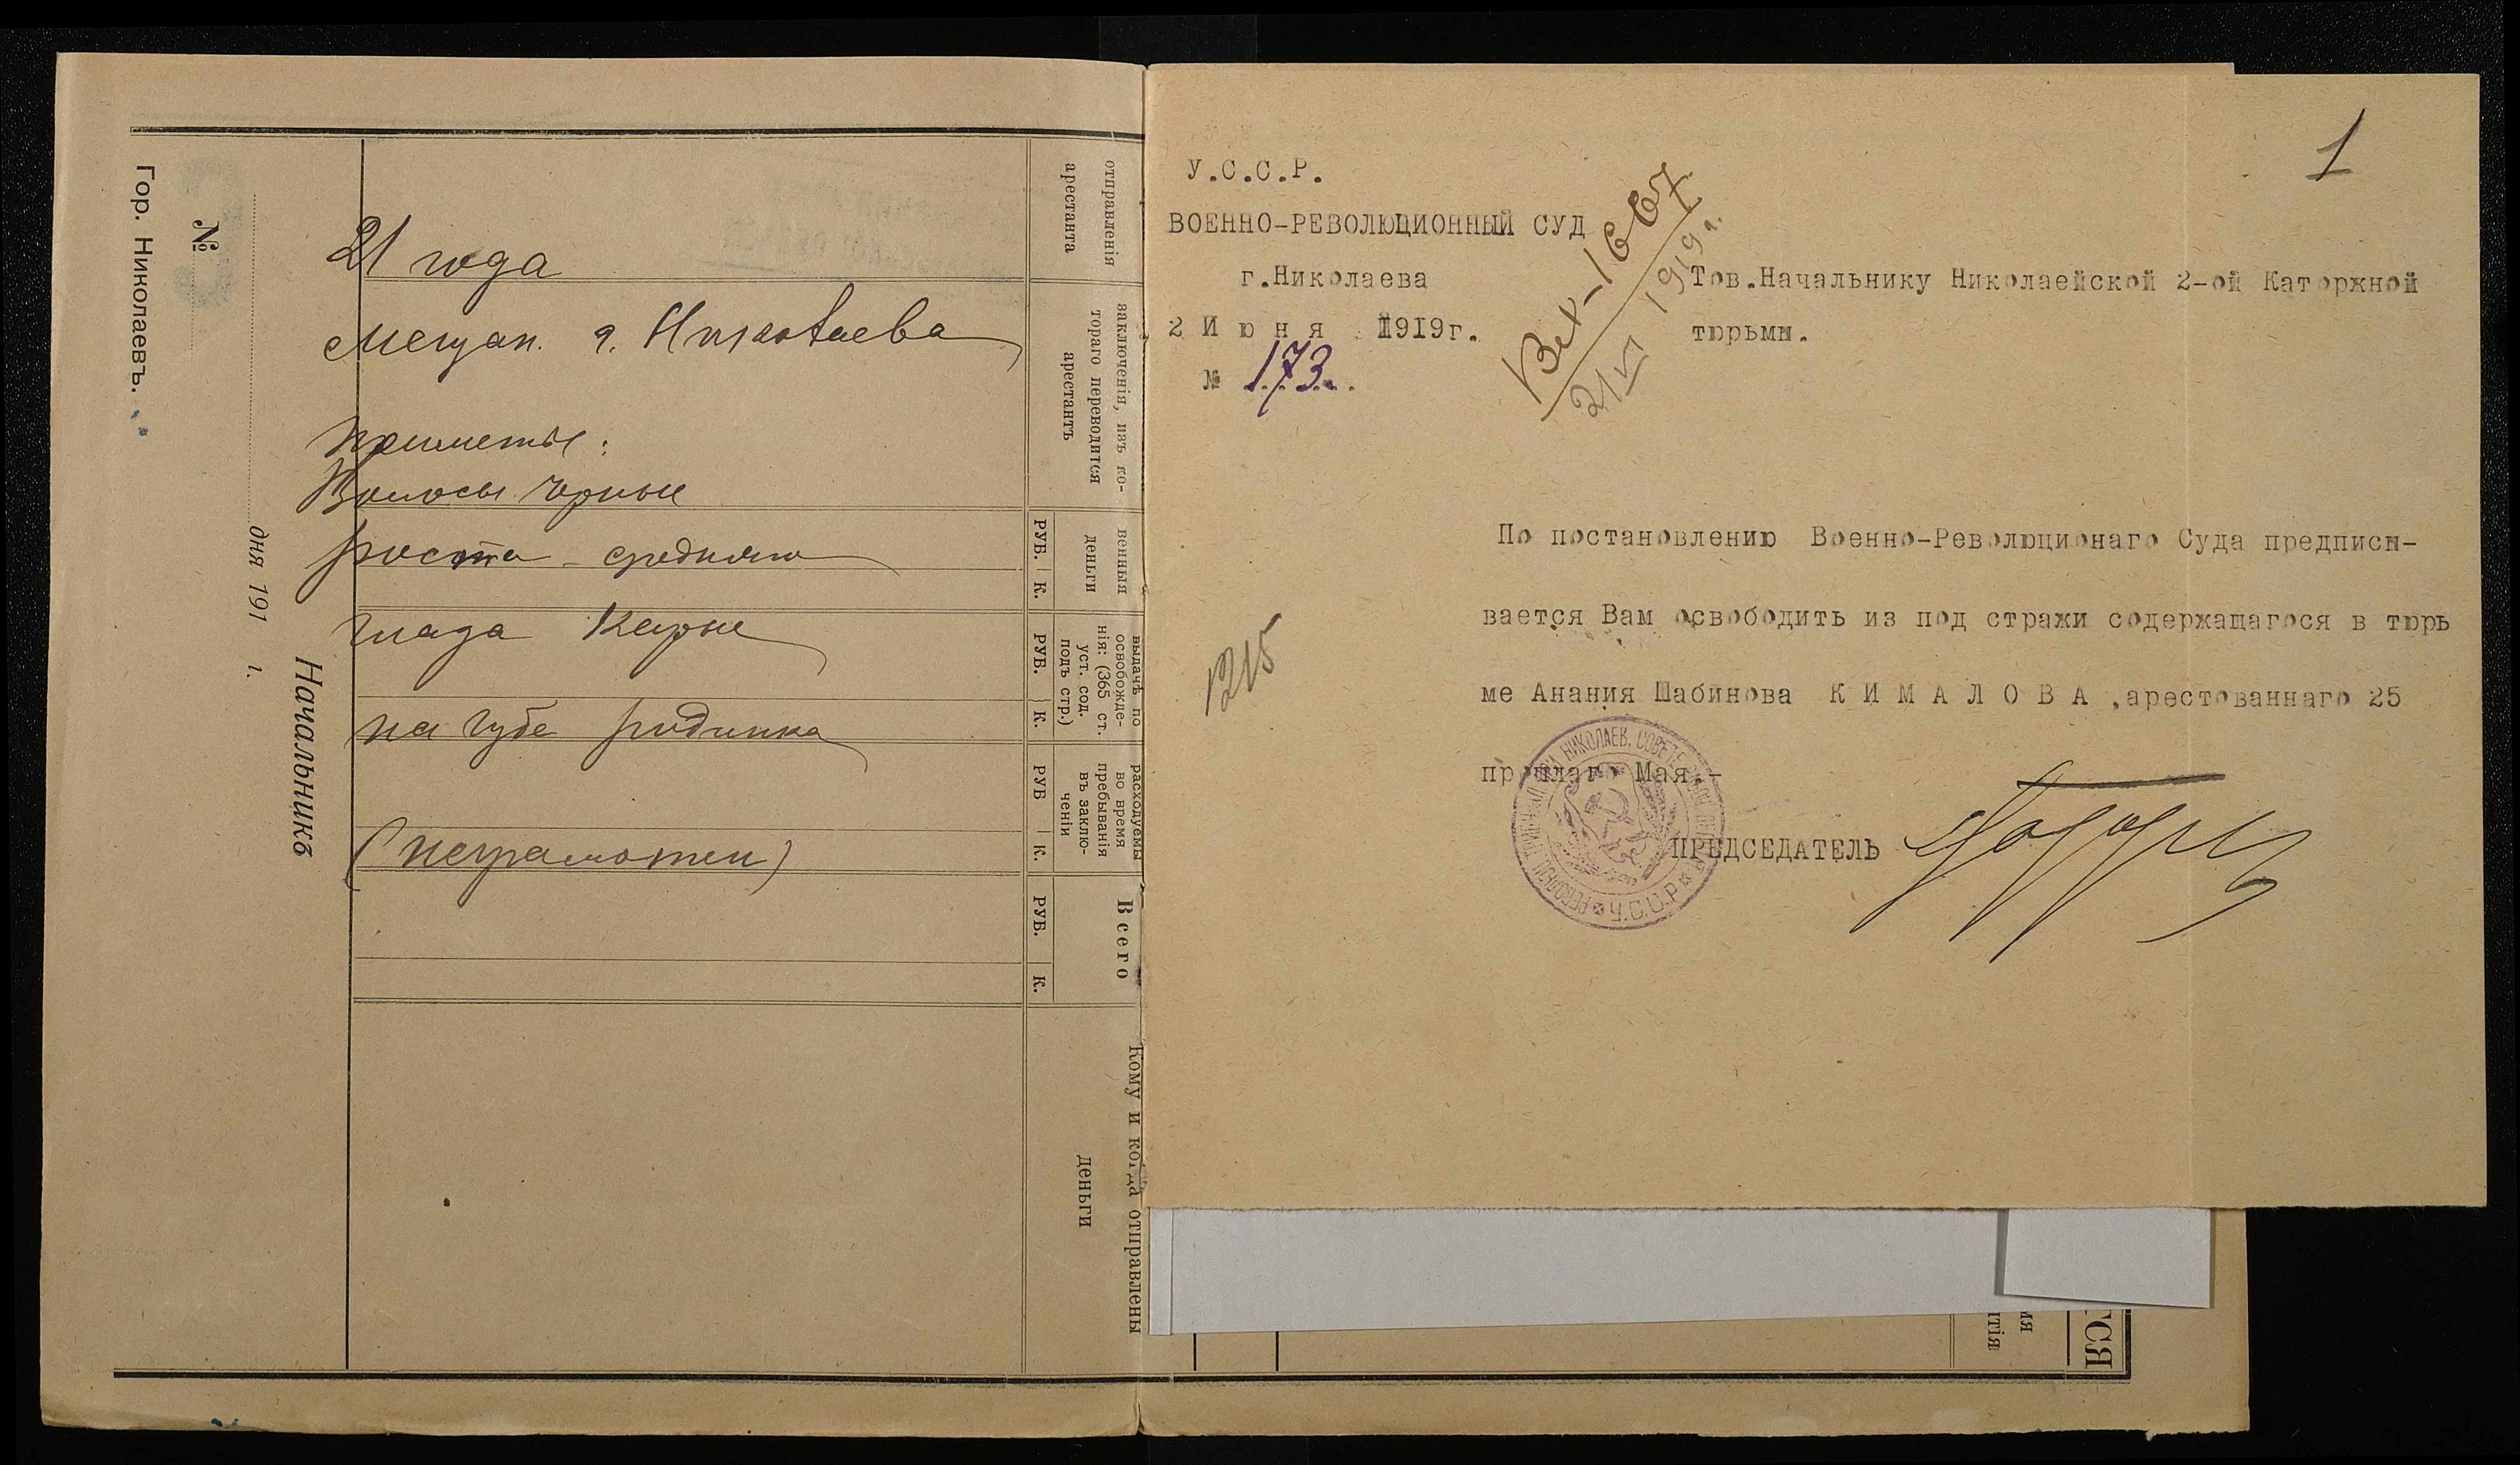 Гор. Николаевъ.
№
дня 191 г.
Начальникъ
21 года
Мещан. г. Николаева
приметы:
Волосы чорные
роста - средняго
глаза Карые
на губе родинка
(неграмотен)
отправленія
арестанта
заключенія, изъ ко-
тораго переводится
арестантъ
венныя
деньги
РУБ. К.
выдачѣ по
освобожде-
нія: (365 ст.
уст. сод.
подъ стр.)
РУБ. К.
расходуемы
во время
пребыванія
въ заклю-
ченіи
РУБ К.
Всего
РУБ. К.
Кому и когда отправлены
деньги
1
У.С.С.Р.
ВОЕННО-РЕВОЛЮЦИОННЫЙ СУД
г.Николаева
2 И ю н я 1919г.
№ 173.
Вх-1667
21/VI 1919 г.
Тов.Начальнику Николаейской 2-ой Каторжной
тюрьмы.
1215
По постановлению Военно-Революционаго Суда предписы-
вается Вам освободить из под стражи содержащагося в тюрь
ме Анания Шабинова К И М А Л О В А ,арестованнаго 25
прошлаго Мая.-
ПРЕДСЕДАТЕЛЬ
НИКОЛАЕВ. СОВЕТЕ
У.С.С.Р.
ТСЯ
мя
тія